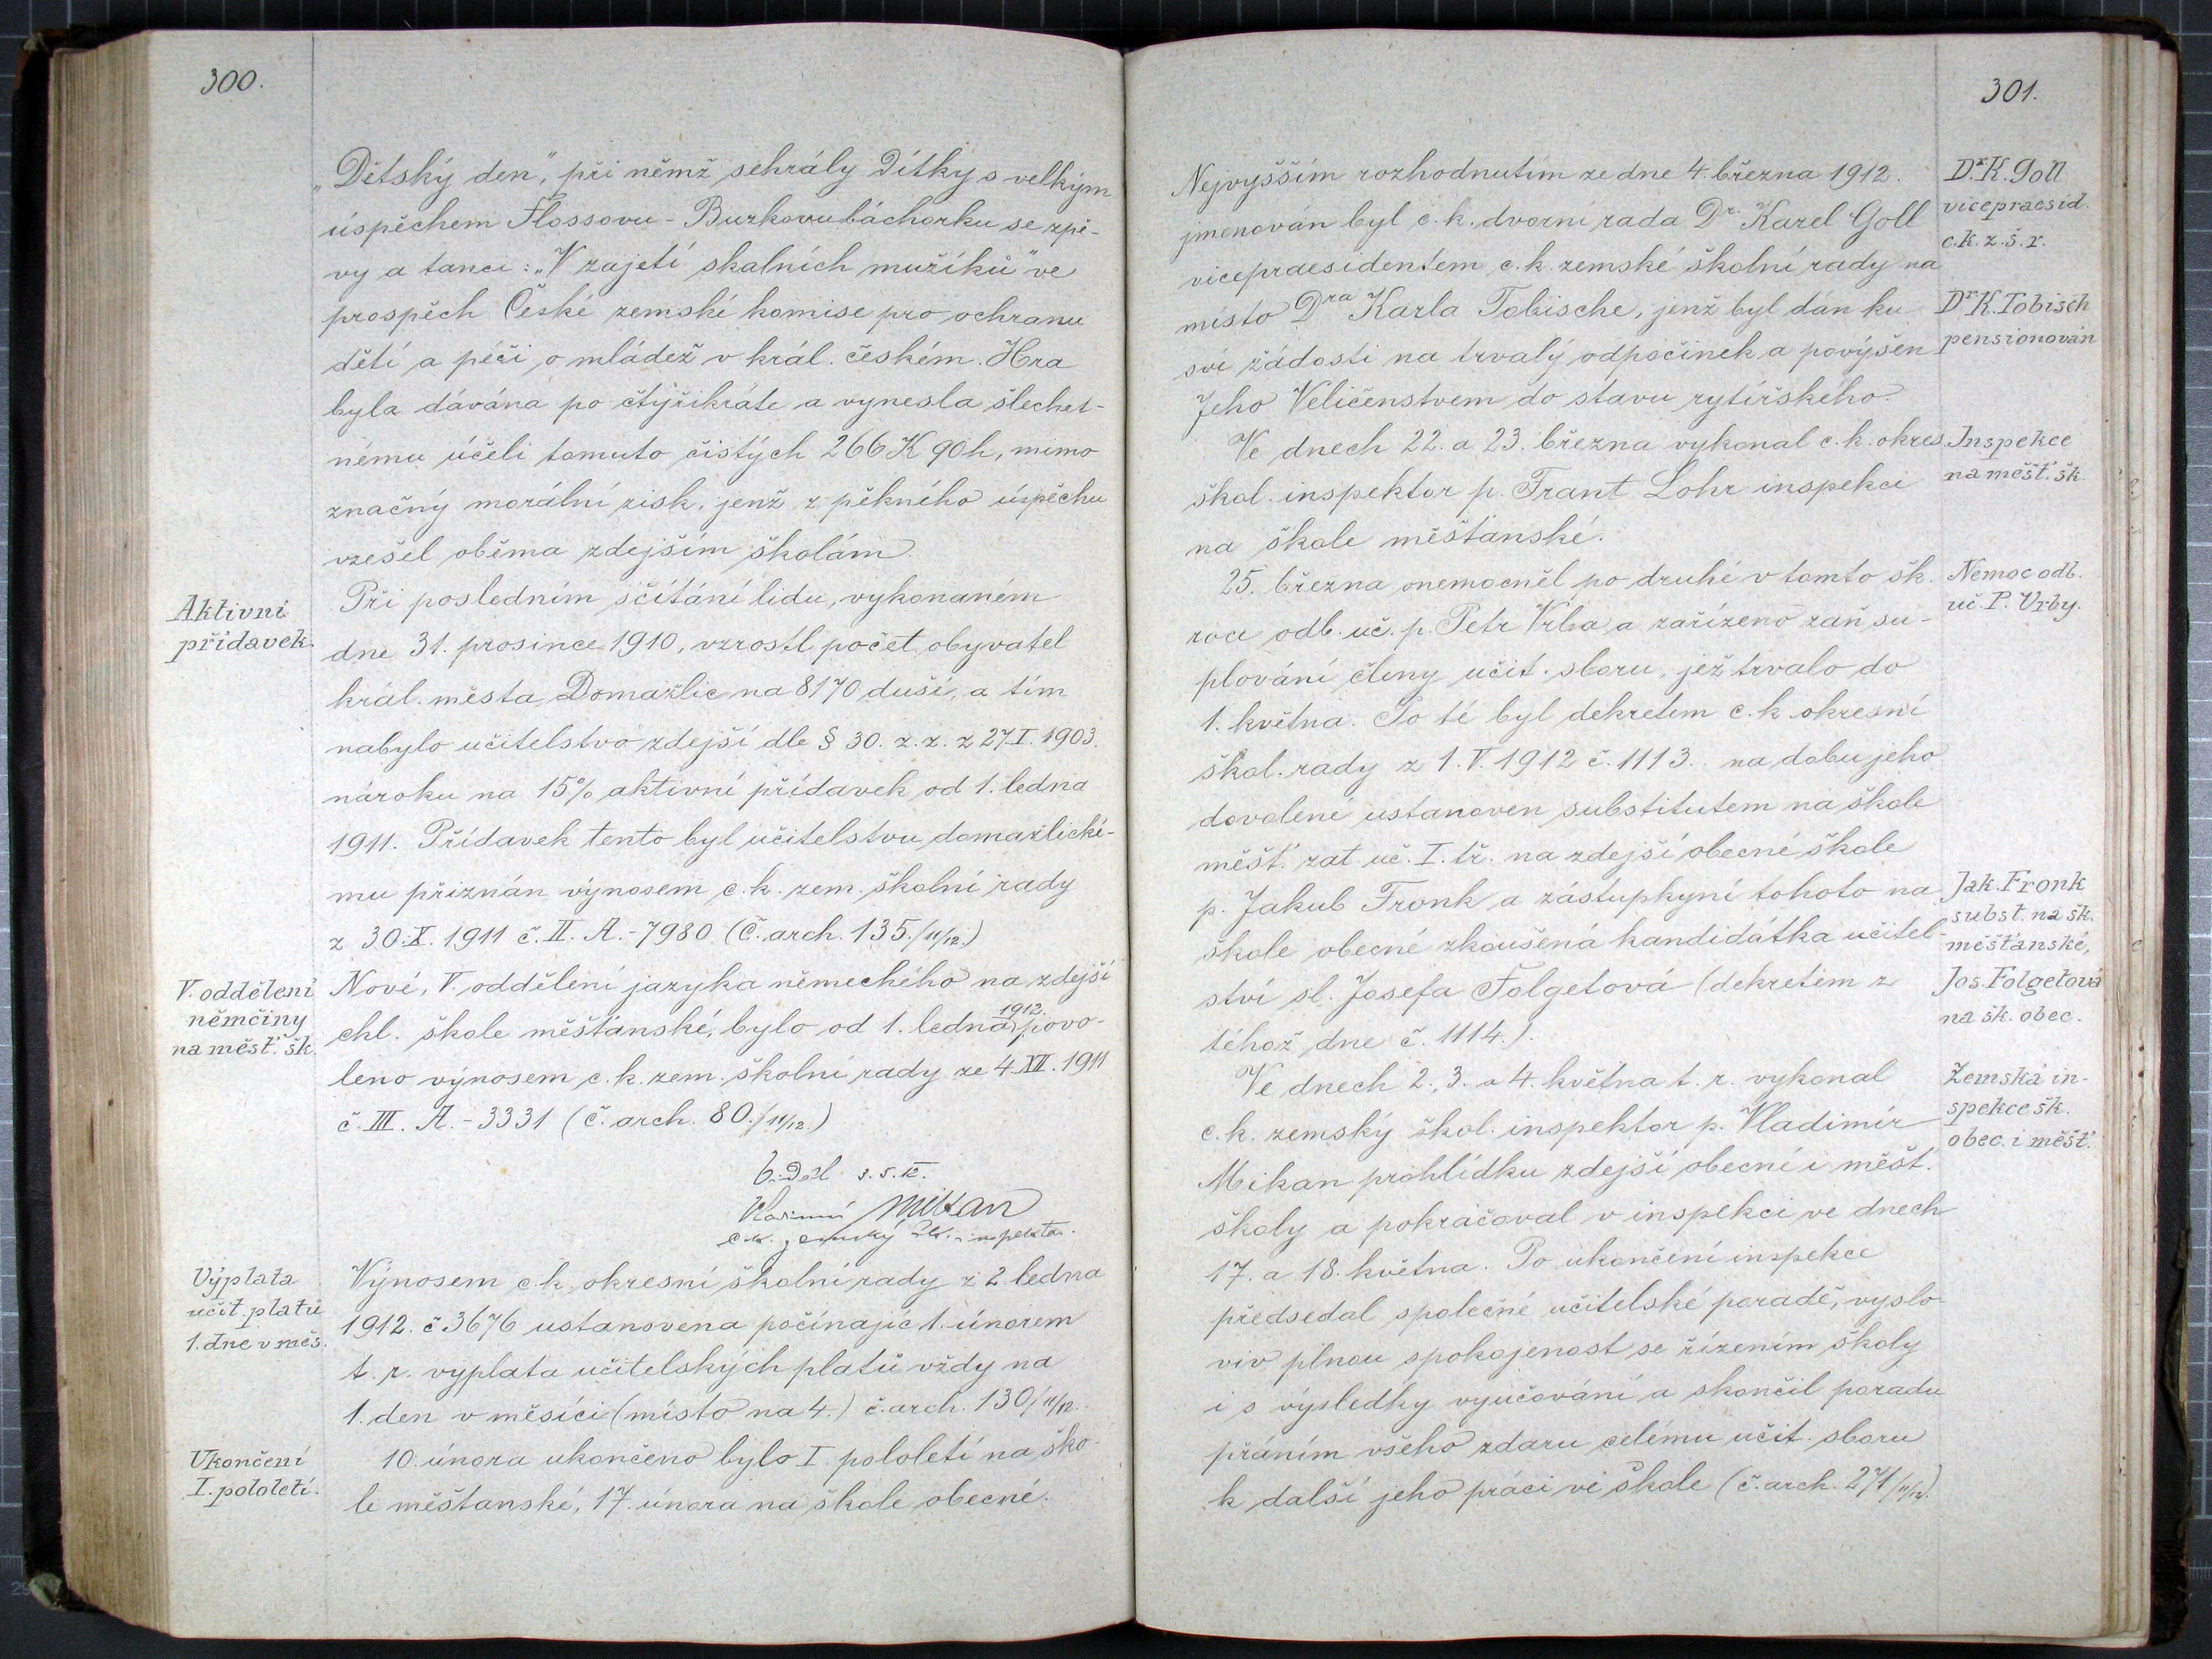 300.
„Dětský den", při němž sehrály dítky s velkým
úspěchem Flossovu-Burkovu báchorku se zpě-
vy a tanci: „V zajetí skalních mužíků" ve
prospěch České zemské komise pro ochranu
dětí a péči o mládež v král. českém. Hra
byla dávána po čtyřikráte a vynesla šlechet-
nému účeli tomuto čistých 266 K 90 h, mimo
značný morální zisk, jenž z pěkného úspěchu
vzešel oběma zdejším školám.
Aktivní
přídavek.
Při posledním sčítání lidu, vykonaném
dne 31. prosince 1910, vzrostl počet obyvatel
král. města Domažlic na 8170 duší, a tím
nabylo učitelstvo zdejší dle § 30. z. z. z 27. I. 1903.
nároku na 15% aktivní přídavek od 1. ledna
1911. Přídavek tento byl učitelstvu domažlické-
mu přiznán výnosem c. k. zem. školní rady
z 30. X. 1911 č. II. A.-7980 (Č. arch. 135./11/12.)
V. oddělení
němčiny
na měšť. šk.
Nové, V. oddělení jazyka německého na zdejší
chl. škole měšťanské, bylo od 1. ledna 1912. povo-
leno výnosem c. k. zem. školní rady ze 4. XII. 1911
č. III. A.-3331 (č. arch. 80./11/12.)
3. 5. 12.
Mikan
c. k. zemský šk. inspektor.
Výplata
učit. platů
1. dne v měs.
Výnosem c. k. okresní školní rady z 2. ledna
1912. č 3676 ustanovena počínajíc 1. únorem
t. r. výplata učitelských platů vždy na
1. den v měsíci (místo na 4.) č. arch. 130/11/12.
Ukončení
I. pololetí.
10. února ukončeno bylo I. pololetí na ško-
le měšťanské, 17. února na škole obecné.
301.
Nejvyšším rozhodnutím ze dne 4. března 1912.
jmenován byl c. k. dvorní rada Dr. Karel Goll
vicepraesidentem c. k. zemské školní rady na
místo Dra Karla Tobische, jenž byl dán ku
své žádosti na trvalý odpočinek a povýšen
Jeho Veličenstvem do stavu rytířského.
Dr. K. Goll
vicepraesid.
c. k. z. š. r.
Dr K. Tobisch
pensionován
Ve dnech 22. a 23. března vykonal c. k. okres.
škol. inspektor p. Frant Lohr inspekci
na škole měšťanské.
Inspekce
na měšť. šk.
25. března onemocněl po druhé v tomto šk.
roce odb. uč. p. Petr Vrba a zařízeno zaň su-
plování členy učit. sboru, jež trvalo do
1. května. Po té byl dekretem c. k. okresní
škol. rady z 1. V. 1912 č. 1113. na dobu jeho
dovolené ustanoven substitutem na škole
měšť. zat. uč. I. tř. na zdejší obecné škole
p. Jakub Fronk a zástupkyní tohoto na
škole obecné zkoušená kandidátka učitel-
ství sl. Josefa Folgetová (dekretem z
téhož dne č. 1114.).
Nemoc odb.
uč. P. Vrby.
Jak. Fronk
subst. na šk.
měšťanské,
Jos. Folgetová
na šk. obec.
Ve dnech 2., 3. a 4. května t. r. vykonal
c. k. zemský škol. inspektor p. Vladimír
Mikan prohlídku zdejší obecné i měšť.
školy a pokračoval v inspekci ve dnech
17. a 18. května. Po ukončení inspekce
předsedal společné učitelské poradě, vyslo-
viv plnou spokojenost se řízením školy
i s výsledky vyučování a skončil poradu
přáním všeho zdaru celému učit. sboru
k další jeho práci ve škole (č. arch. 271/11/12).
Zemská in-
spekce šk.
obec. i měšť.